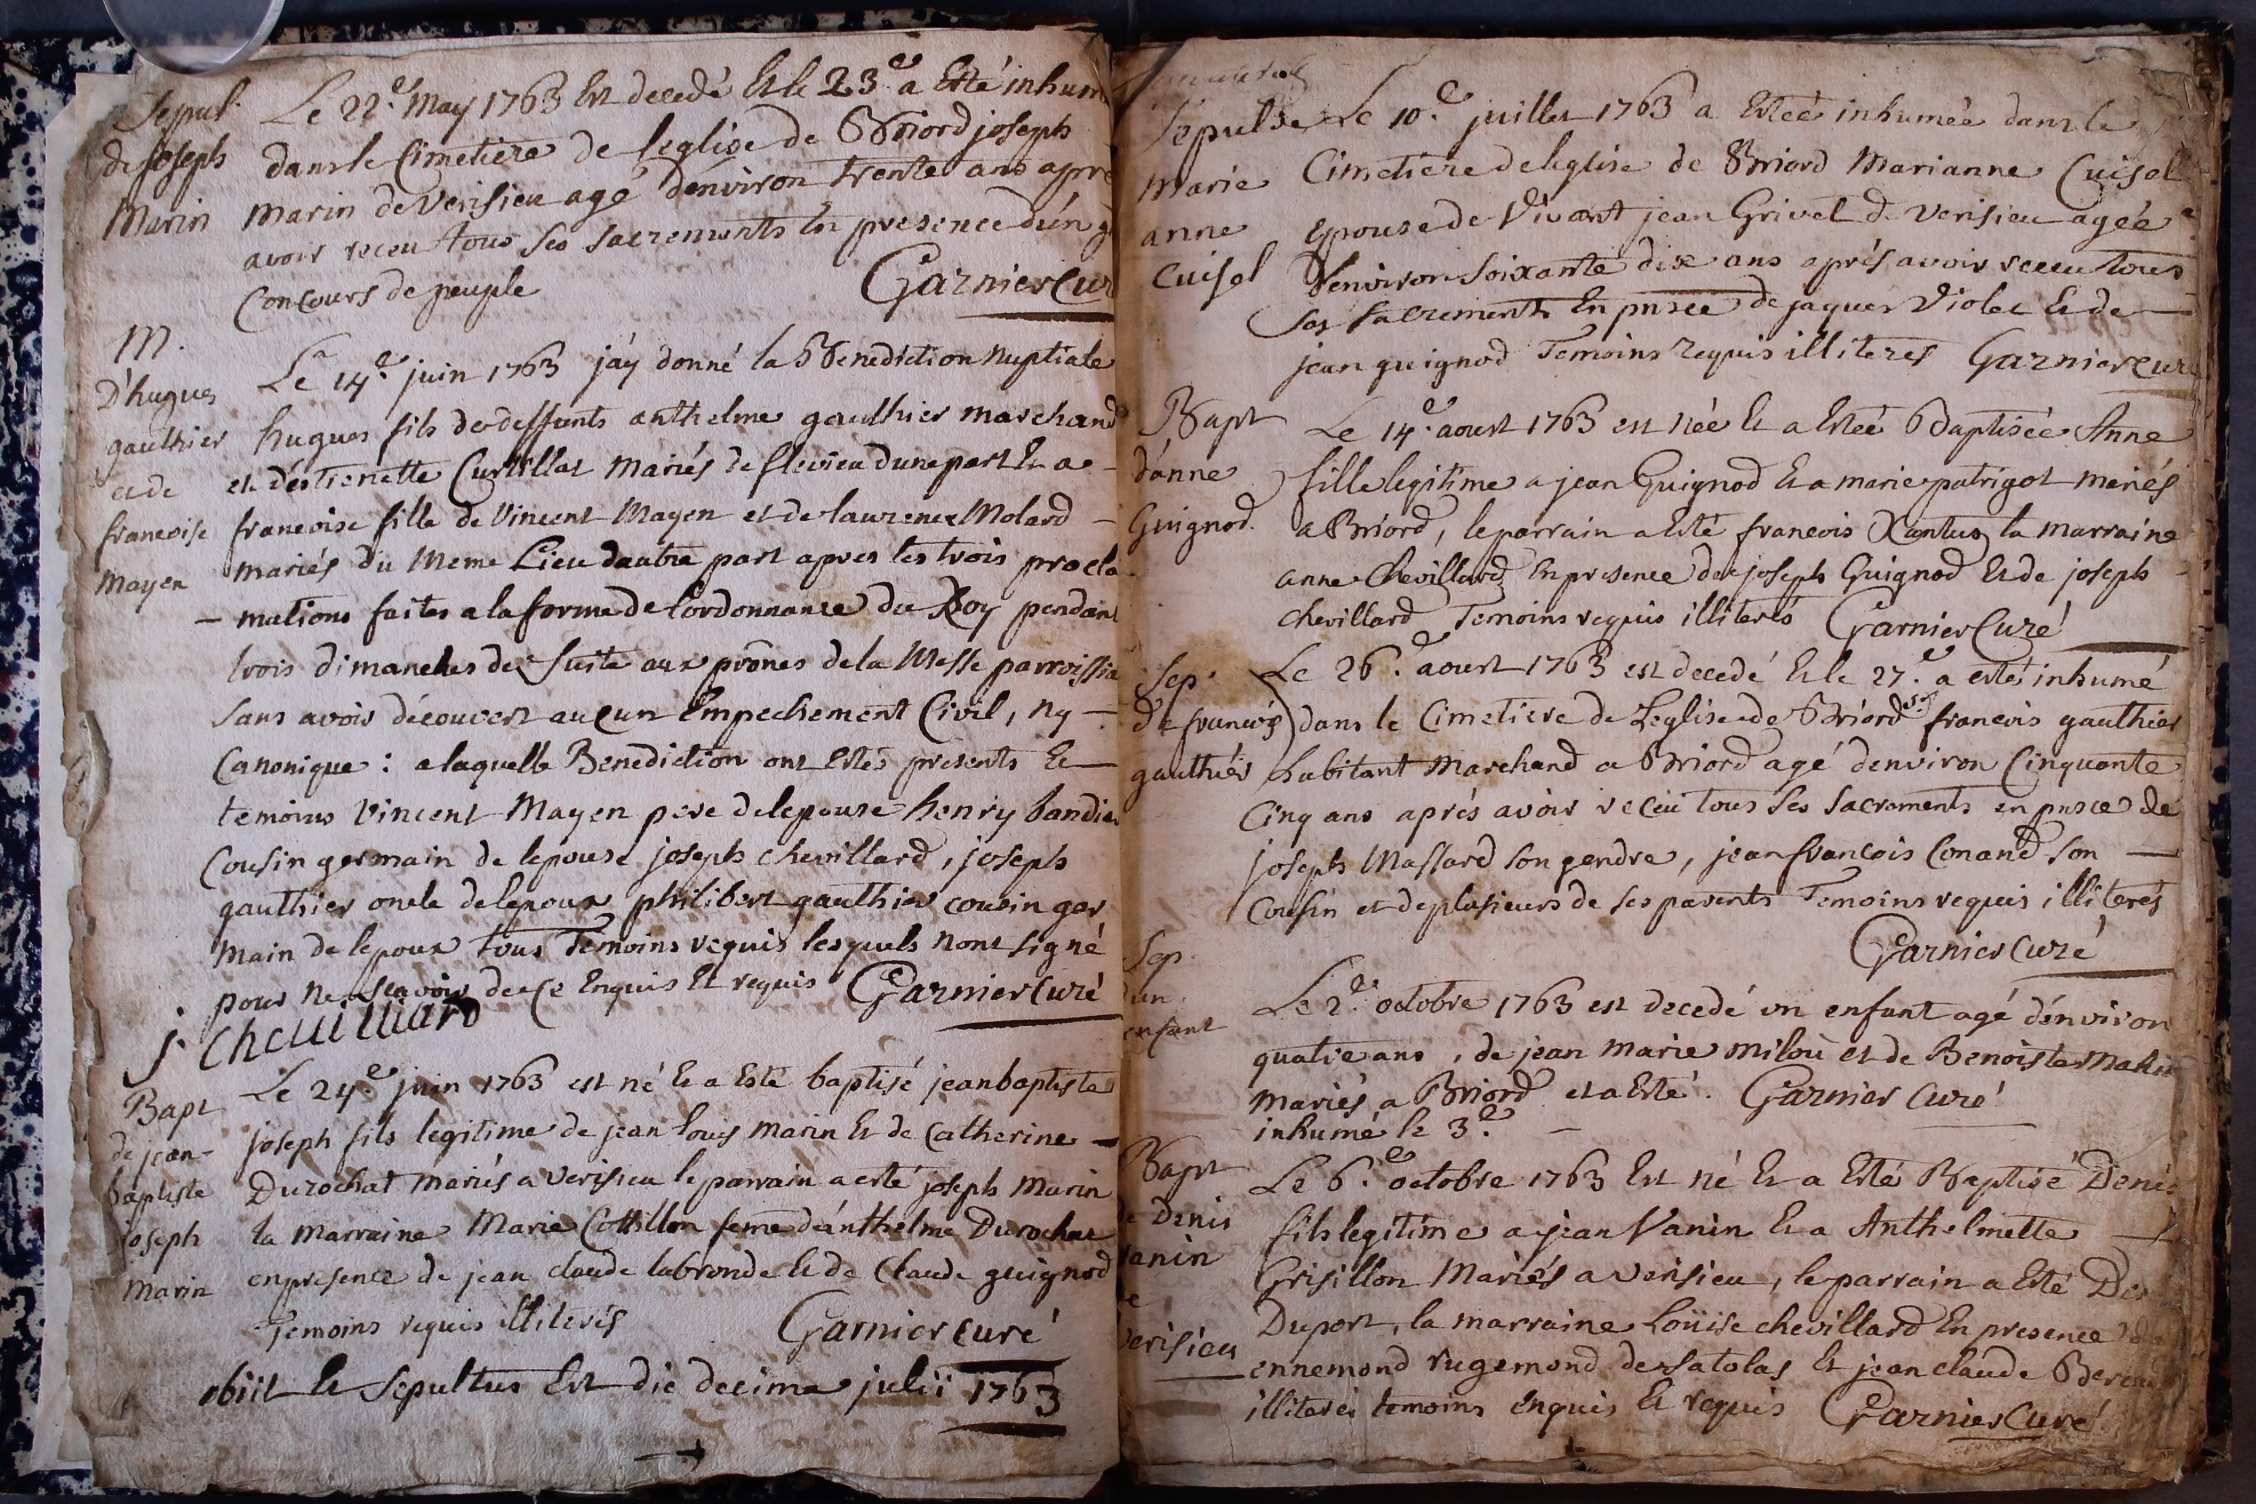 Sepul.
de joseph
Marin
Le 22.e May 1763 Est decedé Et le 23.e a Esté inhum
dans le Cimetiere de leglise de Briord joseph
Marin de Verisieu agé d'énviron trente ans apre
avoir receu tous ses sacrements En presence d'ún g
Concours de peuple Garnier Cur
M.
D'hugues
gauthier
et de
francoise
Mayen
Le 14.e juin 1763 j'áy donné la Benediction Nuptiale
hugues fils de deffunts anthelme gauthier marchand
et d'éstienette Curtillat mariés de flevieu dune part Et a -
francoise fille de Vincent Mayen et de laurence Molard -
mariés du Meme Lieu dautre part apres les trois procla
- mations faites a la forme de lordonnance du Roy pendant
trois dimanches de suite aux prônes de la Messe parroissia
sans avoir découvert aucun Empechement Civil, ny -
Canonique : a laquelle Benediction ont Estés presents Et
temoins Vincent Mayen pere de lepouse henry bandier
Cousin germain de lepouse joseph chevillard, joseph
gauthier oncle de lepoux philibert gauthier cousin ger
main de lepoux tous Temoins requis lesquels nont signé
pour ne sçavoir de ce Enquis Et requis Garnier Curé
j. Chevilliard
Bapt
de jean-
baptiste
joseph
Marin
Le 24.e juin 1763 est né Et a Esté baptisé jean baptiste
joseph fils legitime de jean louis Marin Et de Catherine -
Durochat mariés a verisieu le parrain a esté joseph Marin
la marraine Marie Cottillon feme d'ánthelme Durochat
en presence de jean claude labronde Et de Claude guignod
Temoins requis illiterés Garnier curé
obiit Et Sepultus Est die decima julii 1763
Sepulre
Marie
anne
Cuisel
Le 10.e juillet 1763 a Esteé inhumée dans le
Cimetiere de leglise de Briord Marianne Cuisel
epouse de Vivant jean Grivel de Verisieu agée
d'énviron soixante dix ans aprés avoir receu tous
ses sacrements En pnsce de jaques Violet Et de -
jean guignod Temoins requis illiteres Garnier cure
Bapt
d'anne
Guignod.
Le 14.e aoust 1763 est née Et a Esteé Baptisée Anne
fille legitime a jean Guignod Et a marie patrigot mariés
a Briord, le parrain a Esté francois Xantus la marraine
anne Chevillard En presence de joseph Guignod Et de joseph -
chevillard Temoins requis illiterés Garnier Curé
Sep.
de francois
gauthier
Le 26.e aoust 1763 est decedé Et le 27.e a esté inhumé
dans le Cimetiere de Leglise de Briord sr francois gauthier
habitant Marchand a Briord agé d'environ Cinquante
Cinq ans aprés avoir receu tous ses sacrements en pnsce de
joseph Massard son gendre, jean francois Conand son -
Cousin et de plusieurs de ses parents Temoins requis illiterés
Garnier curé
Sep.
d'un
enfant
Le 2.e octobre 1763 est decedé un enfant agé d'énviron
quatre ans, de jean marie milou et de Benoiste
mariés a Briord et a Esté. Garnier Curé
inhumé le 3.e -
Bapt
de Denis
vanin
de
verisieu
Le 6.e octobre 1763 Est né Et a Esté Baptisé Denis
fils legitime a jean Vanin Et a Anthelmette -
Grisillon Mariés a verisieu, le parrain a Esté
Duport, la marraine Loüise chevillard En presence
ennemond rugemond de satolas Et jean claude
illiterés temoins enquis Et requis Garnier Curé